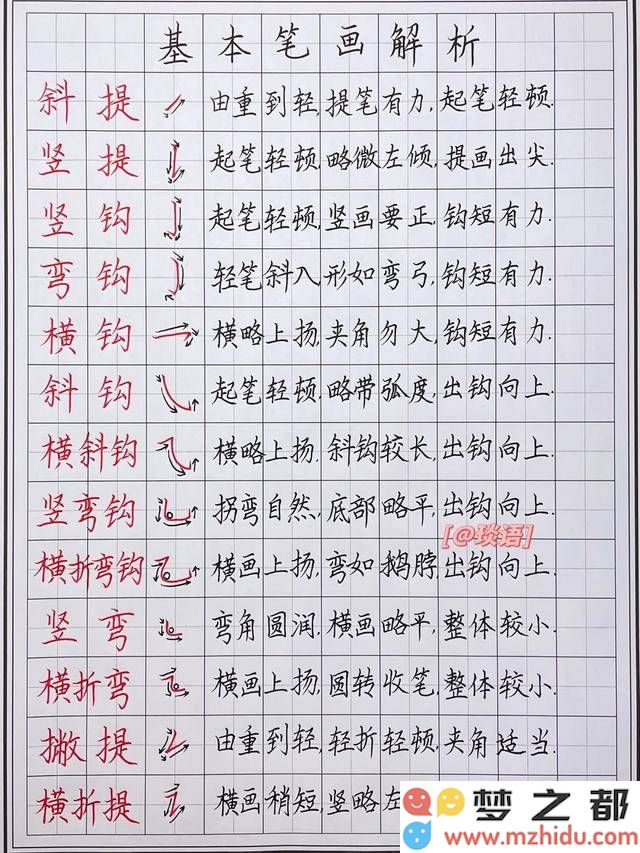 基本笔画解析
斜提 由重到轻,提笔有力,起笔轻顿.
竖提 起笔轻顿,略微左倾,提画出尖.
竖钩 起笔轻顿,竖画要正,钩短有力.
弯钩 轻笔斜入,形如弯弓,钩短有力.
横钩 横略上扬,夹角勿大,钩短有力.
斜钩 起笔轻顿,略带弧度,出钩向上.
横斜钩 横略上扬,斜钩较长,出钩向上.
竖弯钩 拐弯自然,底部略平,出钩向上.
[@琰语]
横折弯钩 横画上扬,弯如鹅脖,出钩向上.
竖弯 弯角圆润,横画略平,整体较小.
横折弯 横画上扬,圆转收笔,整体较小.
撇提 由重到轻,轻折轻顿,夹角适当.
横折提 横画稍短,竖略左
梦之都
www.mzhidu.com